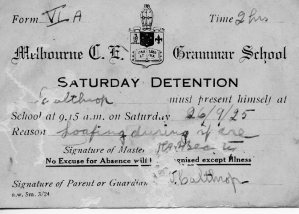 Form VI A Time 2 hrs
Melbourne C. E. Grammar School
SATURDAY DETENTION
Calthrop must present himself at
School at 9.15 a.m. on Saturday 26/9/25
Reason Loafing during
Signature of Master
No Excuse for Absence will be recognised except Illness
Signature of Parent or Guardian Calthrop
n.w. Sm. 3/24